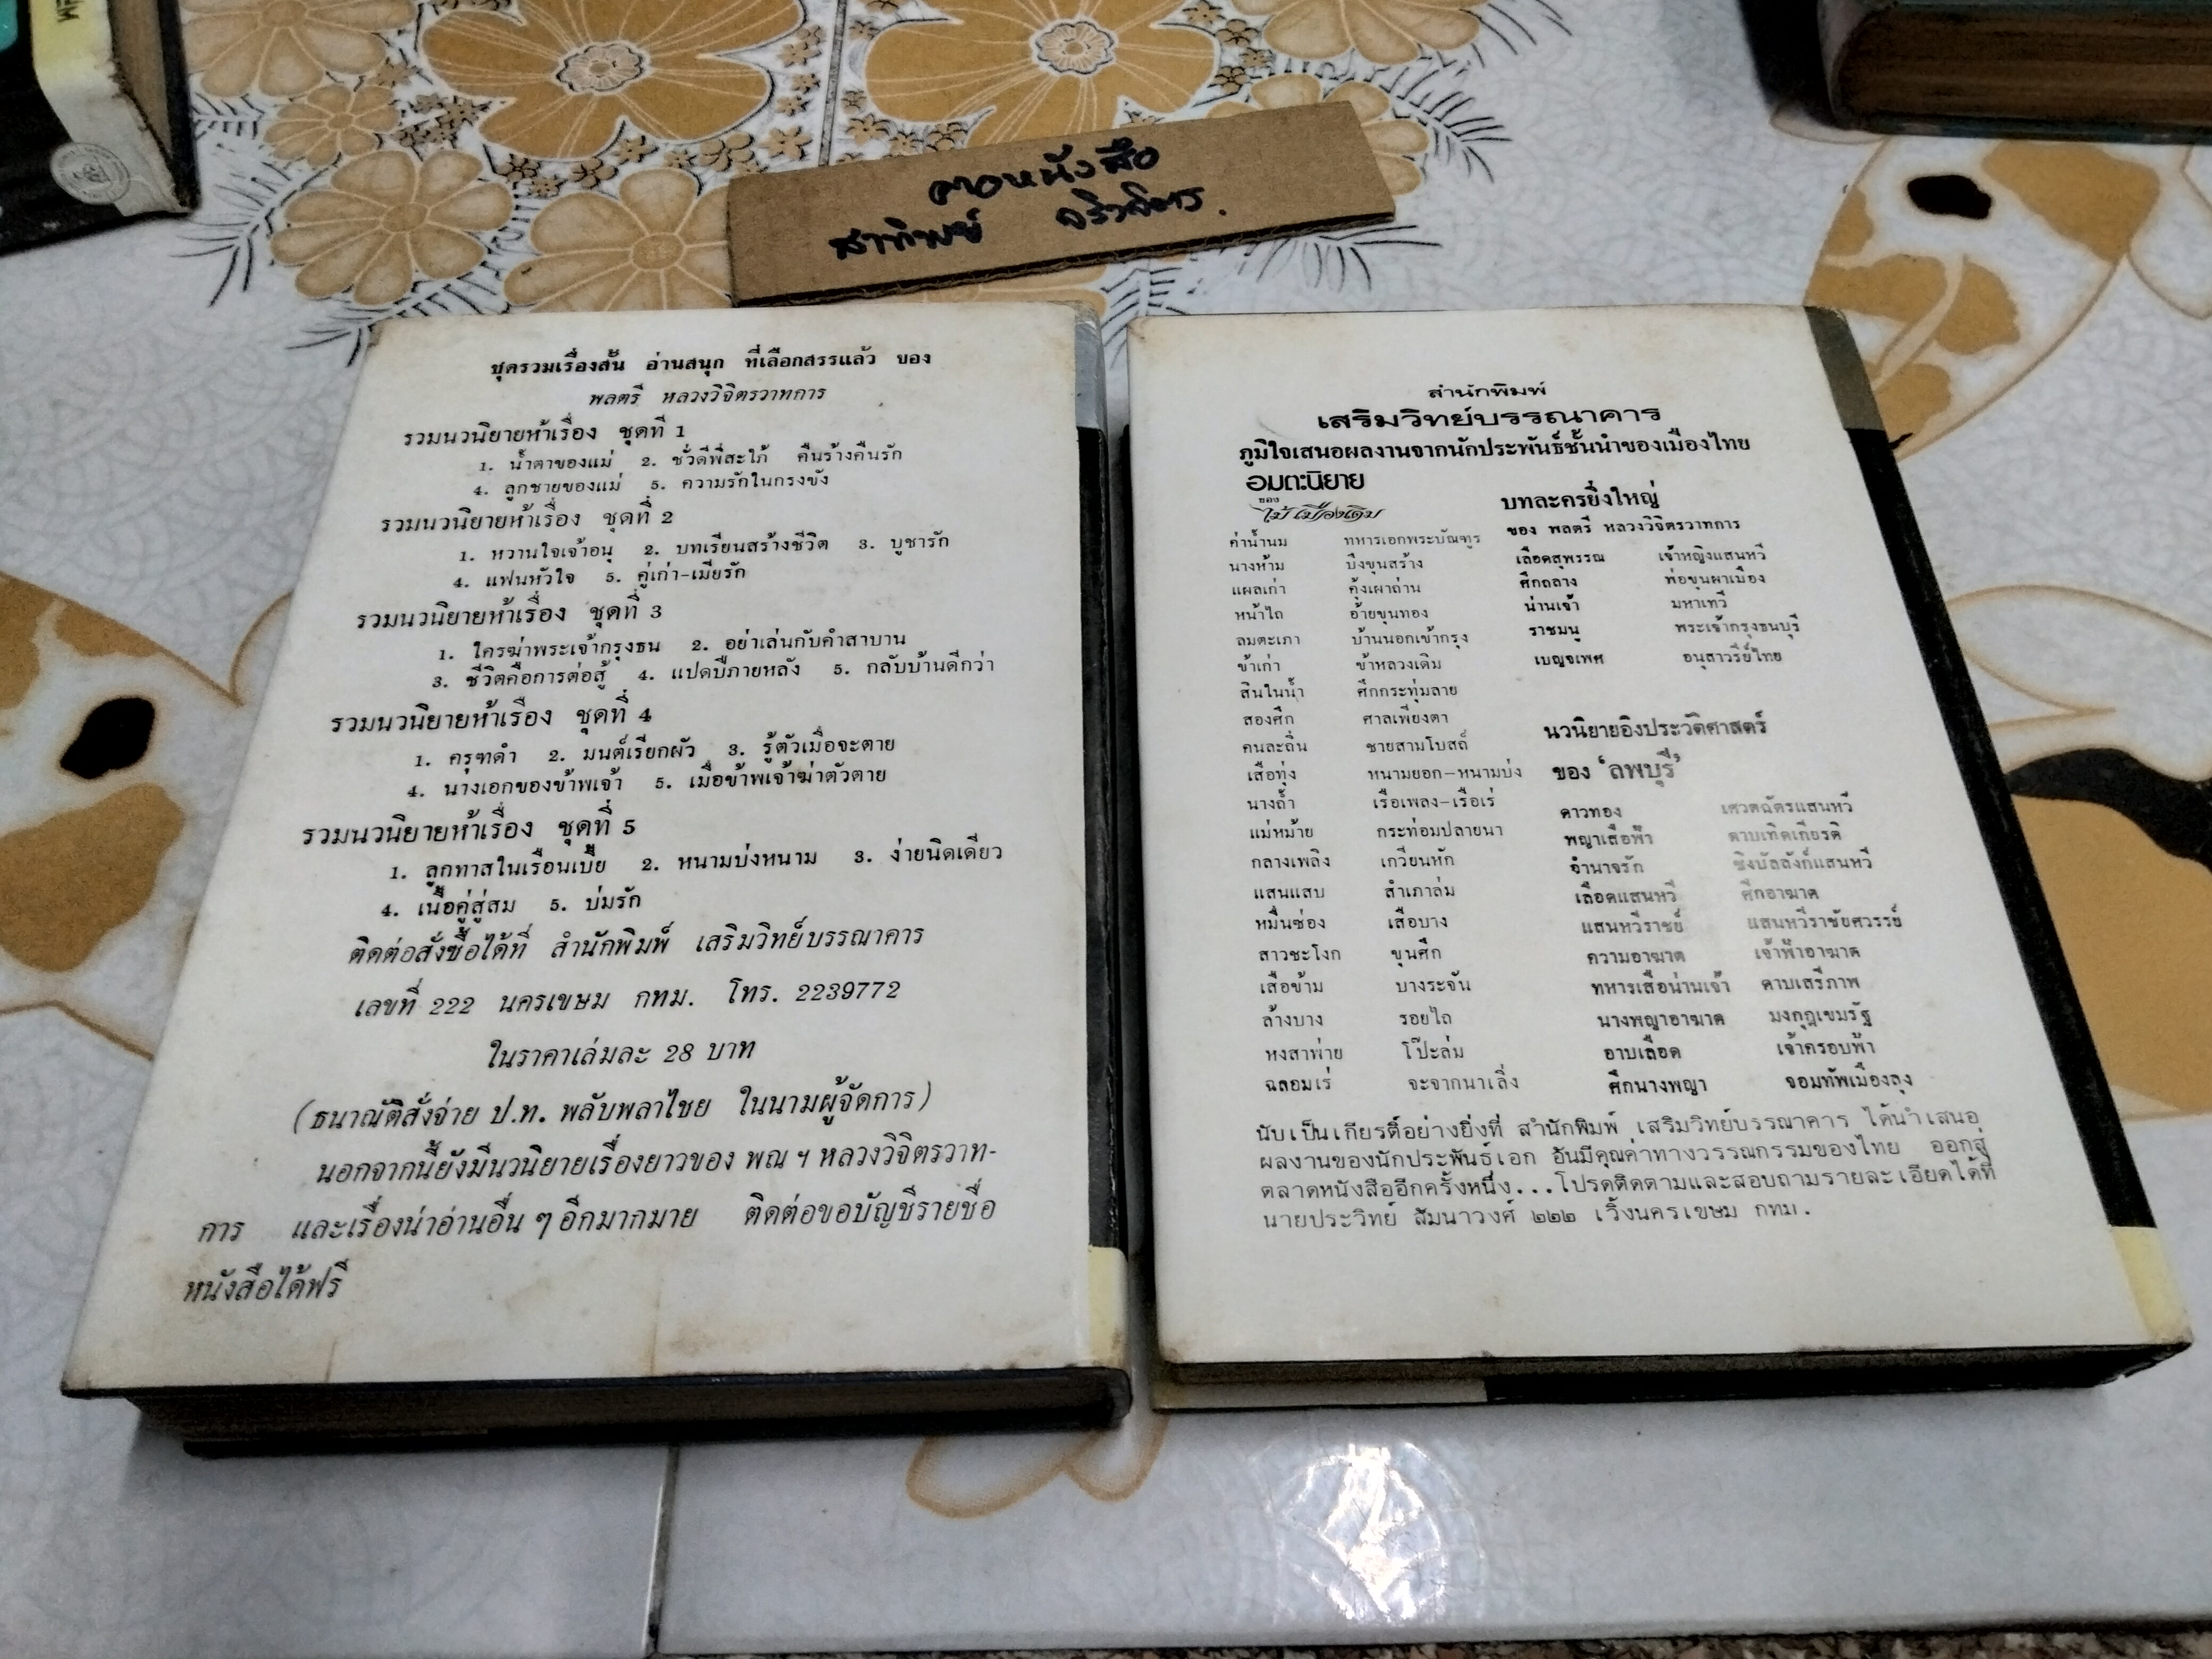 สาทิพย์
ชุดรวมเรื่องสั้น อ่านสนุก ที่เลือกสรรแล้ว ของ
พลตรี หลวงวิจิตรวาทการ
รวมนวนิยายห้าเรื่อง ชุดที่ 1
1. น้ำตาของแม่ 2. ชั่วดีพี่สะใภ้ คืนร้างคืนรัก
4. ลูกชายของแม่ 5. ความรักในกรงขัง
รวมนวนิยายห้าเรื่อง ชุดที่ 2
1. หวานใจเจ้าอนุ 2. บทเรียนสร้างชีวิต 3. บูชารัก
4. แฟนหัวใจ 5. คู่เก่า-เมียรัก
รวมนวนิยายห้าเรื่อง ชุดที่ 3
1. ใครฆ่าพระเจ้ากรุงธน 2. อย่าเล่นกับคำสาบาน
3. ชีวิตคือการต่อสู้ 4. แปดปีภายหลัง 5. กลับบ้านดีกว่า
รวมนวนิยายห้าเรื่อง ชุดที่ 4
1. ครุฑดำ 2. มนต์เรียกผัว 3. รู้ตัวเมื่อจะตาย
4. นางเอกของข้าพเจ้า 5. เมื่อข้าพเจ้าฆ่าตัวตาย
รวมนวนิยายห้าเรื่อง ชุดที่ 5
1. ลูกทาสในเรือนเบี้ย 2. หนามบ่งหนาม 3. ง่ายนิดเดียว
4. เนื้อคู่สู่สม 5. บ่มรัก
ติดต่อสั่งซื้อได้ที่ สำนักพิมพ์ เสริมวิทย์บรรณาคาร
เลขที่ 222 นครเขษม กทม. โทร. 2239772
ในราคาเล่มละ 28 บาท
(ธนาณัติสั่งจ่าย ป.ท. พลับพลาไชย ในนามผู้จัดการ)
นอกจากนี้ยังมีนวนิยายเรื่องยาวของ พณ ฯ หลวงวิจิตรวาท-
การ และเรื่องน่าอ่านอื่น ๆ อีกมากมาย ติดต่อขอบัญชีรายชื่อ
หนังสือได้ฟรี
สำนักพิมพ์
เสริมวิทย์บรรณาคาร
ภูมิใจเสนอผลงานจากนักประพันธ์ชั้นนำของเมืองไทย
อมตะนิยาย
ของ
ไม้ เมืองเดิม
ค่าน้ำนม ทหารเอกพระบัณฑูร
นางห้าม บึงขุนสร้าง
แผลเก่า คุ้งเผาถ่าน
หน้าไถ อ้ายขุนทอง
ลมตะเภา บ้านนอกเข้ากรุง
ข้าเก่า ข้าหลวงเดิม
สินในน้ำ ศึกกระทุ่มลาย
สองศึก ศาลเพียงตา
คนละถิ่น ชายสามโบสถ์
เสือทุ่ง หนามยอก-หนามบ่ง
นางถ้ำ เรือเพลง-เรือเร่
แม่หม้าย กระท่อมปลายนา
กลางเพลิง เกวียนหัก
แสนแสบ สำเภาล่ม
หมื่นซ่อง เสือบาง
สาวชะโงก ขุนศึก
เสือข้าม บางระจัน
ล้างบาง รอยไถ
หงสาพ่าย โป๊ะล่ม
ฉลอมเร่ จะจากนาเลิ่ง
บทละครยิ่งใหญ่
ของ พลตรี หลวงวิจิตรวาทการ
เลือดสุพรรณ เจ้าหญิงแสนหวี
ศึกถลาง พ่อขุนผาเมือง
น่านเจ้า มหาเทวี
ราชมนู พระเจ้ากรุงธนบุรี
เบญจเพศ อนุสาวรีย์ไทย
นวนิยายอิงประวัติศาสตร์
ของ 'ลพบุรี'
ดาวทอง เศวตฉัตรแสนหวี
พญาเสือฟ้า ดาบเทิดเกียรติ
อำนาจรัก ชิงบัลลังก์แสนหวี
เลือดแสนหวี ศึกอาฆาต
แสนหวีราชย์ แสนหวีราชัยศวรรย์
ความอาฆาต เจ้าฟ้าอาฆาต
ทหารเสือน่านเจ้า ดาบเสรีภาพ
นางพญาอาฆาต มงกุฎเขมรัฐ
อาบเลือด เจ้าครอบฟ้า
ศึกนางพญา จอมทัพเมืองลุง
นับเป็นเกียรติ์อย่างยิ่งที่ สำนักพิมพ์ เสริมวิทย์บรรณาคาร ได้นำเสนอ
ผลงานของนักประพันธ์เอก อันมีคุณค่าทางวรรณกรรมของไทย ออกสู่
ตลาดหนังสืออีกครั้งหนึ่ง...โปรดติดตามและสอบถามรายละเอียดได้ที่
นายประวิทย์ สัมนาวงศ์ ๒๒๒ เวิ้งนครเขษม กทม.